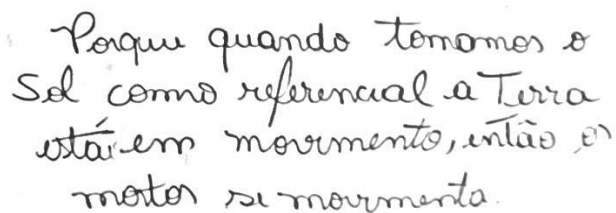 Porque quando tomamos o
Sol como referencial a Terra
está em movimento, então os
motos se movimenta.